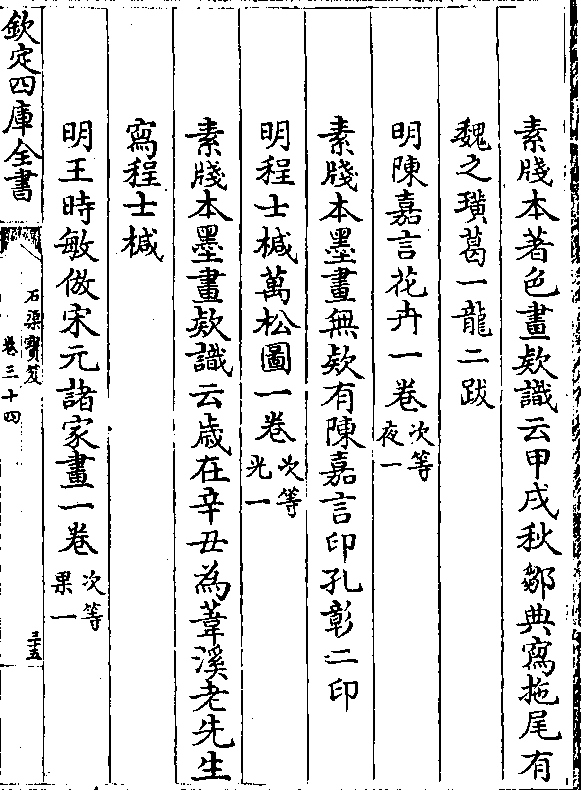 素牋本著色畫欵識云甲戌秋鄒典寫拖尾有
魏之璜葛一龍二跋
明陳嘉言花卉一卷次等夜一
素牋本墨畫無欵有陳嘉言印孔彰二印
明程士椷萬松圖一卷次等光一
素牋本墨畫欵識云歲在辛丑為葦溪老先生
寫程士椷
明王時敏倣宋元諸家畫一卷次等果一
欽定四庫全書
石渠寶笈
卷三十四
三五